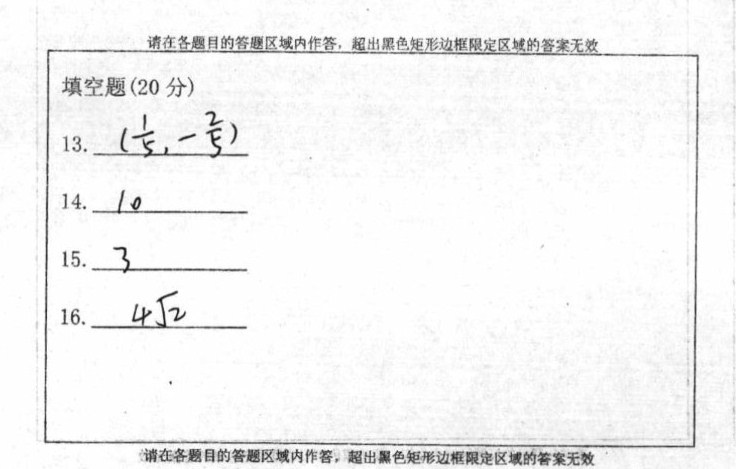 请在各题目的答题区域内作答，超出黑色矩形边框限定区域的答案无效
填空题(20 分)
13. (1/5, -2/5)
14. 10
15. 3
16. 4√2
请在各题目的答题区域内作答，超出黑色矩形边框限定区域的答案无效